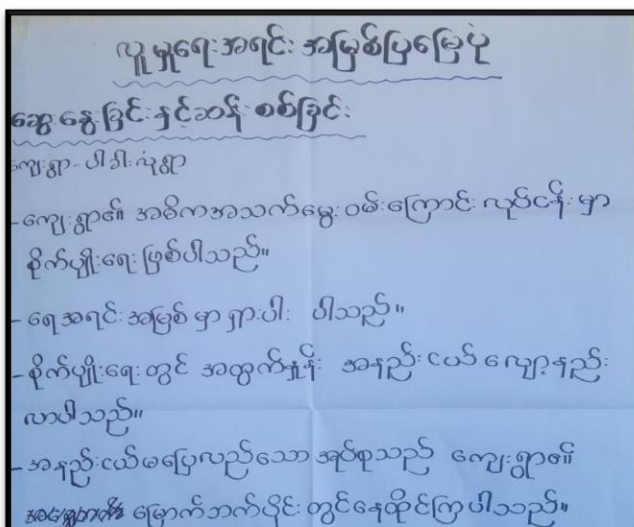 လူမှုရေးအရင်းအမြစ်ပြမြေပုံ
ဆွေးနွေးခြင်းနှင့်ဆန်းစစ်ခြင်း
ကျေးရွာ - ပါဒါးလုံရွာ
- ကျေးရွာ၏ အဓိကအသက်မွေးဝမ်းကြောင်းလုပ်ငန်းမှာ
စိုက်ပျိုးရေးဖြစ်ပါသည်။
- ရေအရင်းအမြစ်မှာ ရှားပါး ပါသည်။
- စိုက်ပျိုးရေးတွင် အထွက်နှုန်း အနည်းငယ် လျော့နည်း
လာပါသည်။
- အနည်းငယ်မပြေလည်သော အုပ်စုသည် ကျေးရွာ၏
မြောက်ဘက်ပိုင်းတွင်နေထိုင်ကြပါသည်။